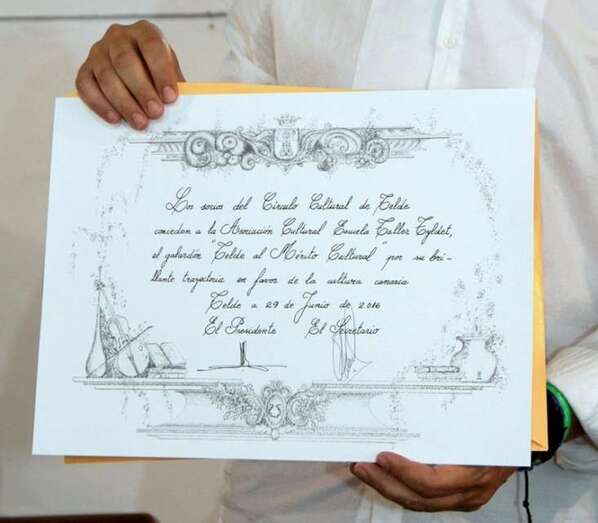 Los socios del Círculo Cultural de Telde
conceden a la Asociación Cultural Escuela Taller Tyldet,
el galardón "Telde al Mérito Cultural" por su bri-
llante trayectoria en favor de la cultura canaria
Telde a 29 de Junio de 2016
El Presidente El Secretario